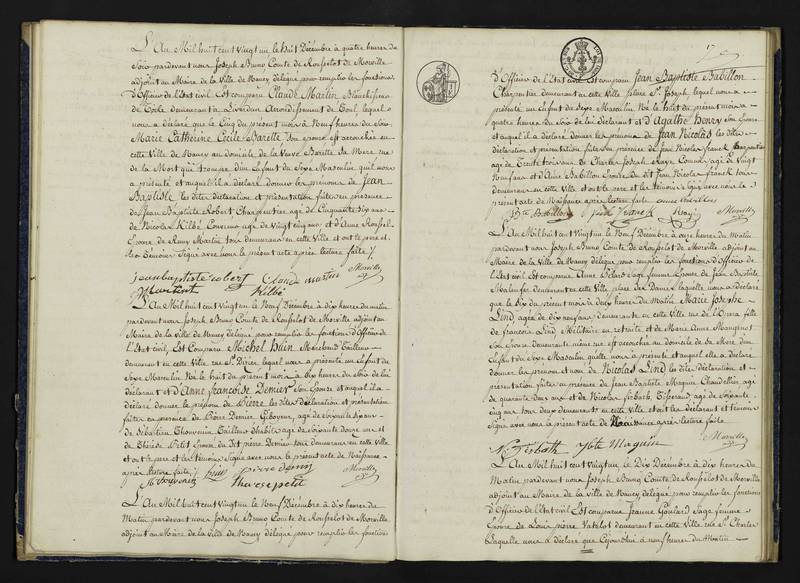 L'An Mil huit cent vingt un le huit Décembre à quatre heures du
Soir pardevant nous Joseph Bruno Comte de Rousselot de Morville
adjoint au Maire de la Ville de Nancy délégué pour remplir les fonctions
d'Officier de l'Etat civil Est comparu Claude Martin, Blanchisseur
de Toile demeurant à Liverdun Arrondissement de Toul, lequel
nous a déclaré que le Cinq du présent mois à Neuf heures du Soir
Marie Catherine Cécile Barette Son épouse est accouchée en
cette Ville de Nancy au domicile de la Veuve Barette Sa Mere rue
de la Monnaye d'un Enfant du Sexe Masculin qu'il nous
a présenté et auquel il a déclaré donner les prénoms de Jean
Baptiste les dites déclaration et présentation faites en présence
de Jean Baptiste Robert Charpentier agé de Cinquante Six ans
de Nicolas Kilbé, agé de Vingt cinq ans et d'Anne
Epouse de Remy Martin tous demeurant en cette Ville et ont le pere et
les témoins Signé avec nous le présent acte après lecture faite
jean baptiste robert Claude martin Morville
Kilbé
L'An Mil huit cent Vingt un le Neuf Décembre à dix heures du matin
pardevant nous Joseph Bruno Comte de Rousselot de Morville adjoint au
Maire de la Ville de Nancy délégué pour remplir les fonctions d'Officier de
l'Etat civil, Est Comparu Michel Huin Marchand Tailleur
demeurant en cette Ville rue St Dizier lequel nous a présenté un Enfant du
Sexe Masculin Né le huit du présent mois à dix heures du Soir de lui
déclarant et d'Anne Françoise Demier Son Epouse et auquel il a
déclaré donner le prénom de Pierre les dites Déclaration et présentation
faites en présence de Pierre Demier agé de Soixante Six ans
de Sébastien Thouvenin Tailleur d'habits agé de Soixante douze ans et
de Thérèse Petit Epouse du dit pierre Demier tous demeurant en cette Ville
et ont le pere et les témoins Signé avec nous le présent acte de Naissance
après lecture faite huin pierre demier Morville
therese petit
L'An Mil huit cent Vingt un le Neuf Décembre à dix heures du
Matin pardevant nous Joseph Bruno Comte de Rousselot de Morville
adjoint au Maire de la Ville de Nancy délégué pour remplir les fonctions
d'Officier de l'Etat civil Est comparu Jean Baptiste Babillon
Charpentier demeurant en cette Ville place St Joseph lequel nous a
présenté un Enfant du Sexe Masculin Né le huit du présent mois à
quatre heures du Soir de lui déclarant et d'Agathe Henry Son Epouse
et auquel il a déclaré donner les prénoms de Jean Nicolas les dites
déclaration et présentation faites en présence de Jean Nicolas Franck
agé de Trente trois ans de Charles Joseph agé de Vingt
Neuf ans et d'Anne Babillon Epouse du dit Jean Nicolas Franck tous
demeurant en cette Ville et ont le pere et les témoins Signé avec nous le
présent acte de Naissance après lecture faite
Bte Babillon Franck Morville
L'An Mil huit cent Vingt un le Neuf Décembre à onze heures du Matin
pardevant nous Joseph Bruno Comte de Rousselot de Morville adjoint au
Maire de la Ville de Nancy délégué pour remplir les fonctions d'Officier de
l'Etat civil Est comparue Anne Sage femme Epouse de Jean Baptiste
demeurant en cette Ville place des Dames, laquelle nous a déclaré
que le Six du présent mois à deux heures du Matin Marie Josephe
Lind agée de dix neuf ans demeurante en cette Ville rue de l'Opera fille
de François Lind Militaire en retraite et de Marie Anne Mangenot
Son Epouse demeurante même rue est accouchée au domicile de Sa Mere d'un
Enfant du Sexe Masculin qu'elle nous a présenté et auquel elle a déclaré
donner les prénom et nom de Nicolas Lind les dites Déclaration et
présentation faites en présence de Jean Baptiste Maguin Chandellier agé
de quarante deux ans et de Nicolas Tisserand agé de Soixante
Cinq ans tous deux demeurant en cette Ville et ont les déclarant et témoins
Signé avec nous le présent acte de Naissance après lecture faite.
Jbte Maguin Morville
L'An Mil huit cent Vingt un le Dix Décembre à dix heures du
Matin pardevant nous Joseph Bruno Comte de Rousselot de Morville
adjoint au Maire de la Ville de Nancy délégué pour remplir les fonctions
d'Officier de l'Etat civil Est comparue Jeanne Goulard Sage femme
Epouse de Louis pierre Vatelot demeurant en cette Ville rue St Charles
Laquelle nous a déclaré que Cejourd'hui à neuf heures du Matin